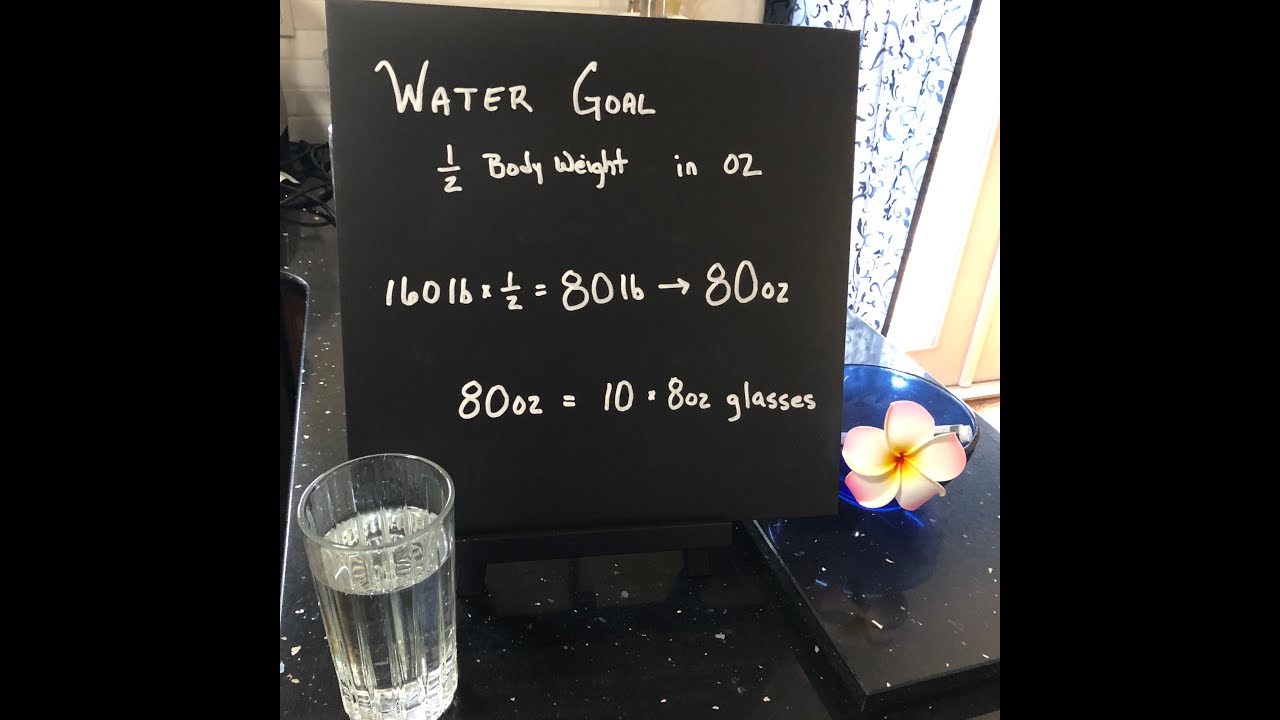 WATER GOAL
1/2 Body Weight in oz
160 lb × 1/2 = 80 lb → 80 oz
80 oz = 10 × 8 oz glasses